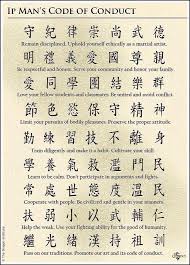 IP MAN'S CODE OF CONDUCT
守紀律崇尚武德
Remain disciplined. Uphold yourself ethically as a martial artist.
明禮義愛國尊親
Be respectful and honest. Serve your community and honor your family.
愛同學團結樂群
Love your fellow students and classmates. Be united and avoid conflict.
節色慾保守精神
Limit your pursuits of bodily pleasures. Preserve the proper attitude.
勤練習技不離身
Train diligently and make it a habit. Cultivate your skill.
學養氣戒濫鬥
Learn to be calm. Don't participate in arguments and fights.
常處世態度溫
Cooperate with people. Be civilized and gentle in your manners.
扶弱小以武輔仁
Help the weak. Use your fighting ability for the good of humanity.
繼光緒漢持祖訓
Pass on our traditions. Promote our art and its code of conduct.